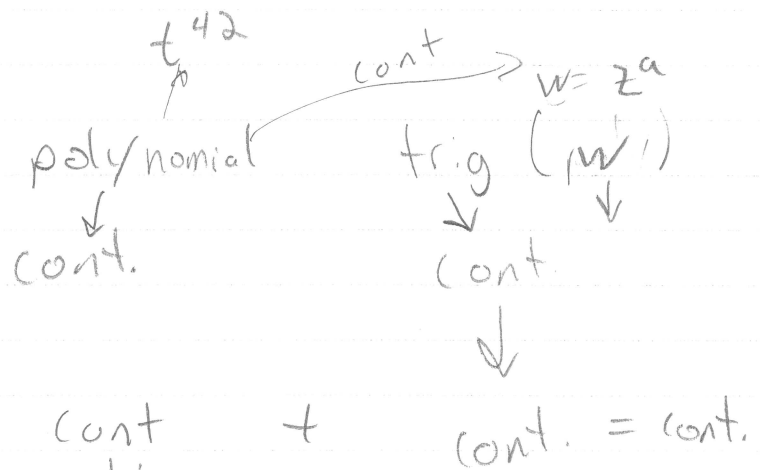 t^42
cont
w = z^a
polynomial
trig (w)
cont.
cont.
cont + cont. = cont.